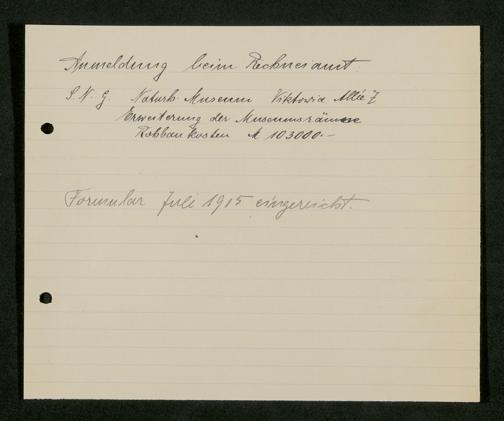 Anmeldung beim Rechneiamt
S. N. G. Naturh. Museum Viktoria Allee 7
Erweiterung der Museumsräume
Rohbaukosten M 103000.-
Formular Juli 1915 eingereicht.